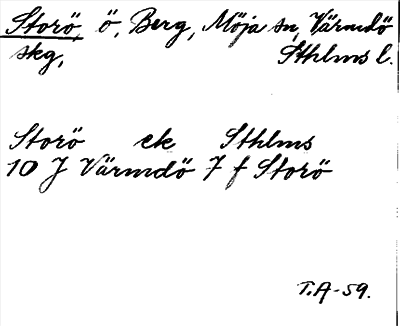 Storö, ö, Berg, Möja sn, Värmdö
skg, Sthlms l.
Storö ek Sthlms
10 J Värmdö 7 f Storö
T.A-59.